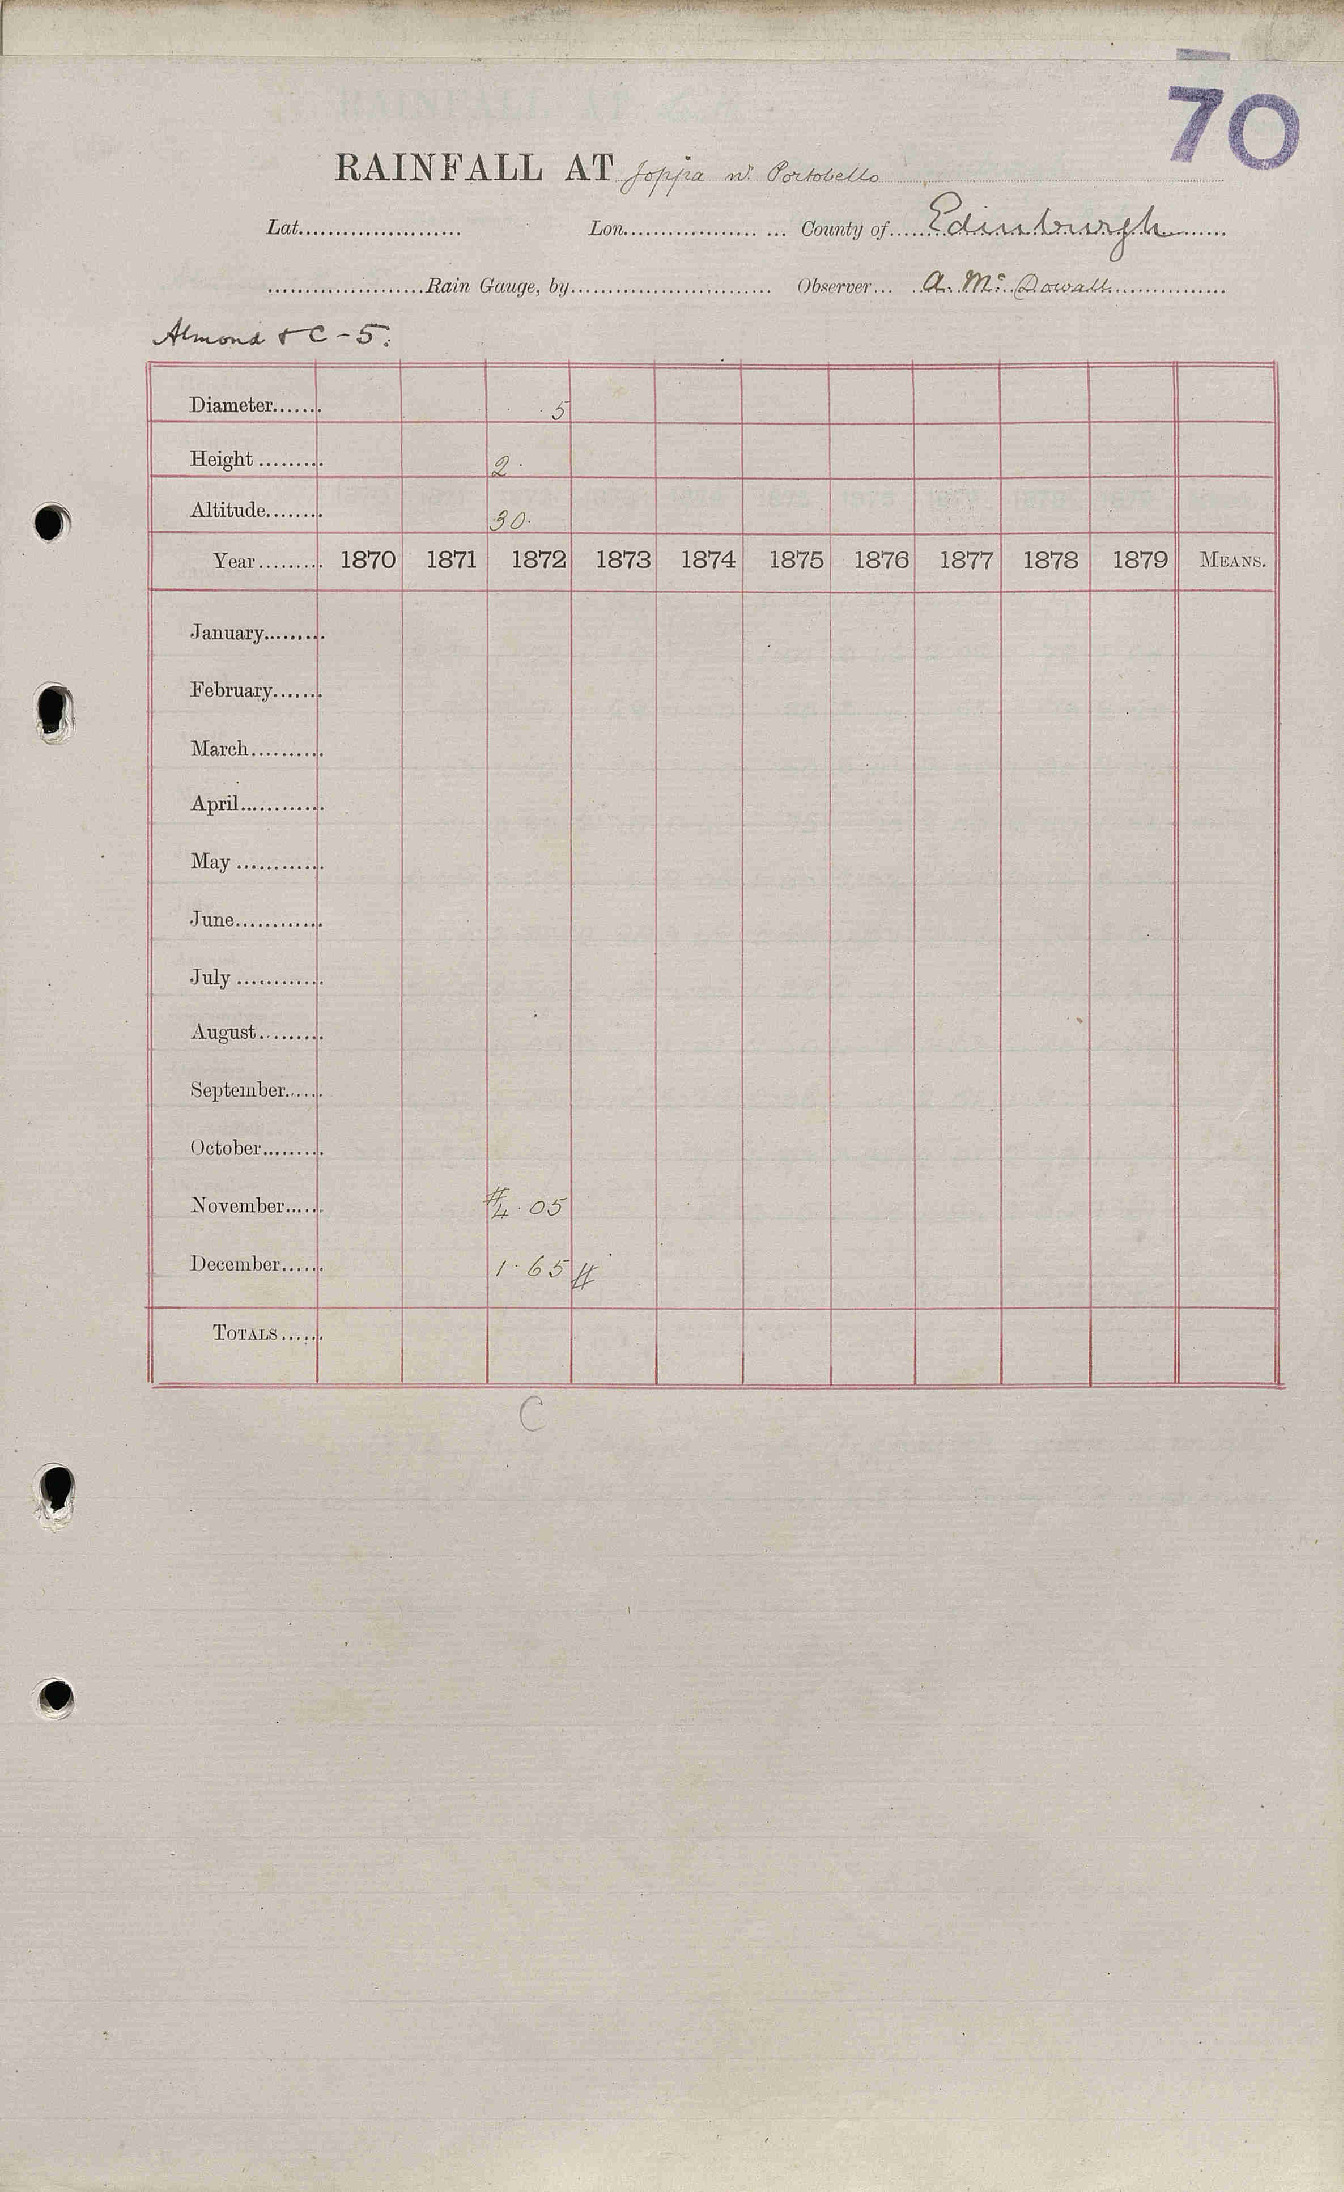 70
RAINFALL AT Joppa nr. Portobello
Lat...................... Lon.................. ... County of.....Edinburgh.......
.....................Rain Gauge, by........................... Observer... ..A. Mc. Dowall...............
Almond & C - 5.
Diameter....... 5
Height ......... 2.
Altitude........ 30.
Year......... 1870 1871 1872 1873 1874 1875 1876 1877 1878 1879 MEANS.
January.........
February.......
March..........
April............
May ............
June............
July ............
August.........
September......
October.........
November...... # 4.05
December...... 1.65 #
TOTALS......
C